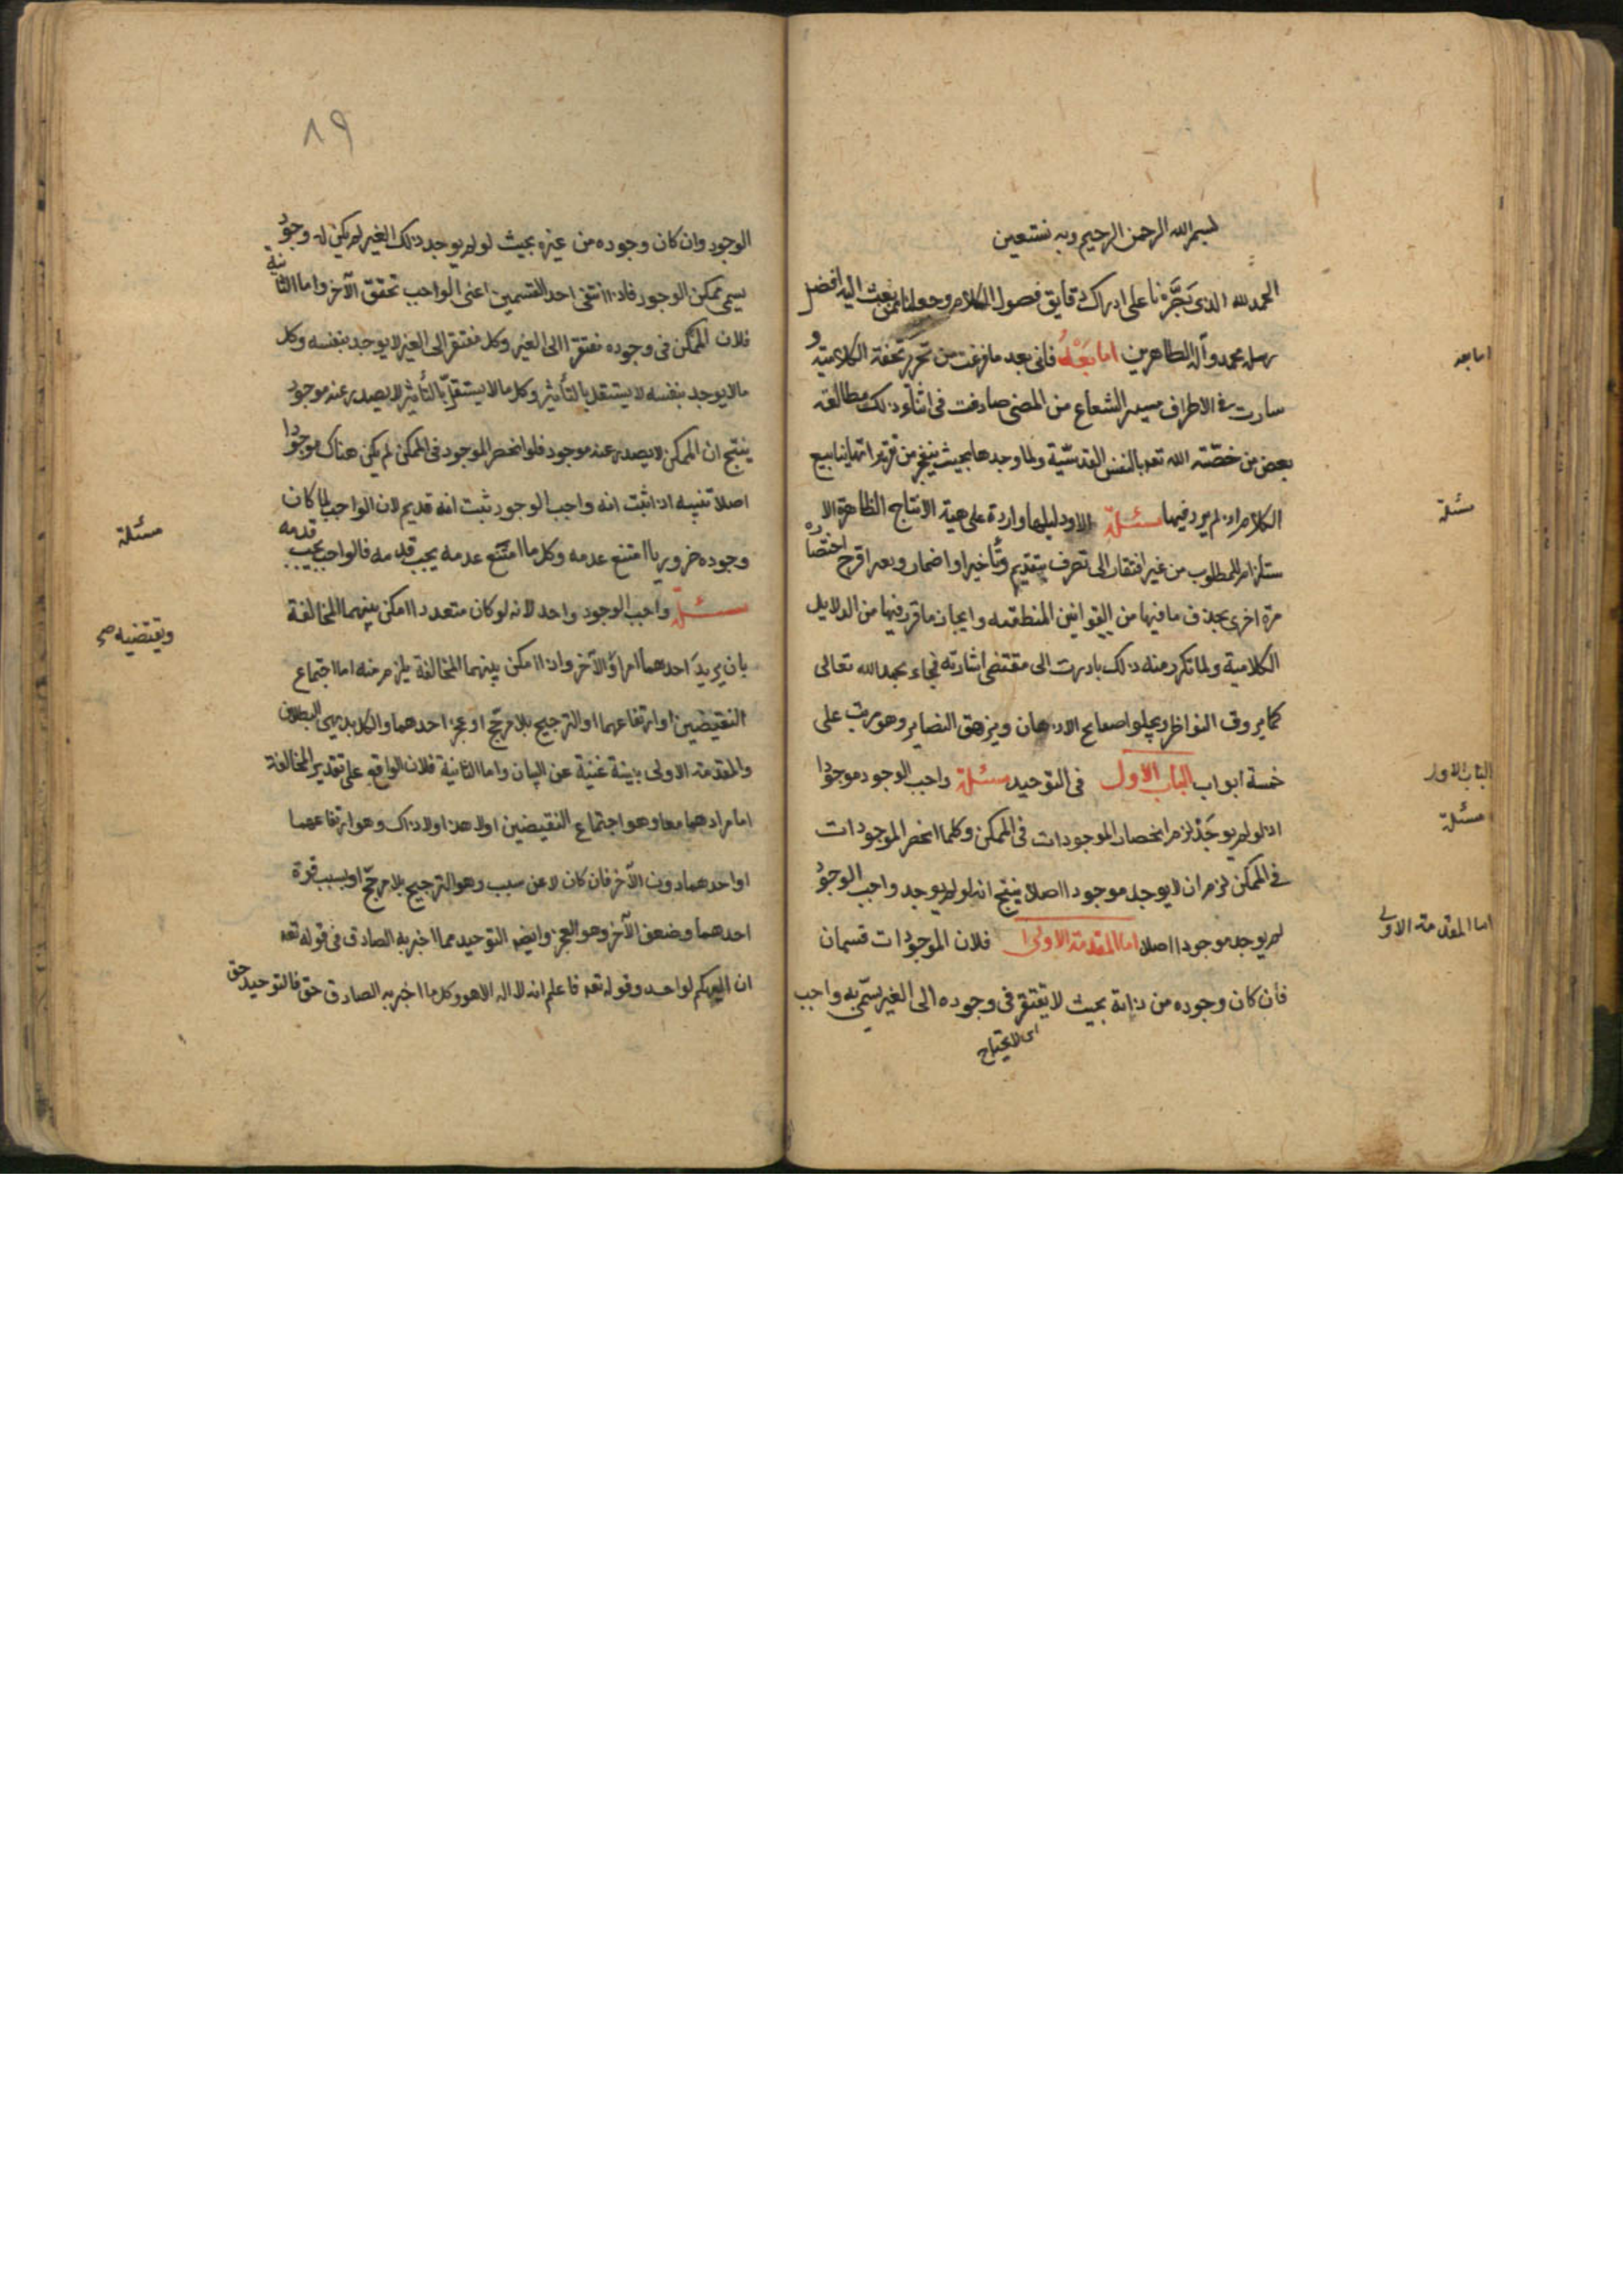 بسم الله الرحمن الرحيم وبه نستعين
الحمد لله الذي نا على ادراك دقايق فصول الكلام وجعلنا ممن بعث اليه افضل
رسله محمد وآله الطاهرين اما بعد فاني بعد ما فرغت من تحرير تحفة الكلامية و
اما بعد
سارت في الاطراف مسير الشعاع من المضئ صادفت في اثناء ذلك مطالعة
بعض من خصّته الله تعه بالنفس القدسّية ولما وجدها بحيث ينفجر من ينابيع
الكلام اذ لم يرد فيها مسئلة الا ودليلها واردة على هيئة الانتاج الظاهرة الا
مسئلة
ستلزام للمطلوب من غير افتقار الى تصرف بتقديم وتأخير او اضمار وبعد اقترح اختصاره
مرة اخرى بحذف ما فيها من القوانين المنطقيه وايجاز ما قرر فيها من الدلايل
الكلامية ولما تكرر منه ذلك بادرت الى مقتضى اشارته فجاء بحمد الله تعالى
كما يروق النواظر ويجلو اصداء الاذهان ويزهق وهو مرتب على
خمسة ابواب الباب الاول في التوحيد مسئلة واجب الوجود موجودا
الباب الاول
مسئلة
اذ لو لم يوجد لزم انحصار الموجودات في الممكن وكلما انحصر الموجودات
في الممكن لزم ان لا يوجد موجود اصلا ينتج انه لو لم يوجد واجب الوجود
لم يوجد موجود اصلا اما المقدمة الاولى فلان الموجودات قسمان
اما المقدمة الاولى
فان كان وجوده من ذاته بحيث لا يفتقر في وجوده الى الغير يسمّى به واجب
اى لا يحتاج
٨٩
الوجود وان كان وجوده من غيره بحيث لو لم يوجد ذلك الغير لم يكن له وجود
يسمى ممكن الوجود فاذا انتفى احد القسمين اعنى الواجب تحقق الآخر واما الثانية
فلان الممكن في وجوده مفتقرا الى الغير وكل مفتقر الى الغير لا يوجد بنفسه وكل
ما لا يوجد بنفسه لا يستقل بالتأثير وكل ما لا يستقلّ بالتأثير لا يصدر عنه موجود
ينتج ان الممكن لا يصدر عنه موجود فلو انحصر الموجود في الممكن لم يكن هناك موجودا
اصلا تنبيه اذا ثبت انه واجب الوجود ثبت انه قديم لان الواجب لما كان
مسئلة
وجوده ضروريا امتنع عدمه وكل ما امتنع عدمه يجب قدمه فالواجب يجب قدمه
مسئلة واجب الوجود واحد لانه لو كان متعددا امكن بينهما المخالفة
ويقتضيه صح
بان يريد احدهما امرا والآخر واذا امكن بينهما المخالفة يلزم منه اما اجتماع
النقيضين او ارتفاعهما او الترجيح بلا مرجّح او عجز احدهما والكل بديهى البطلان
والمقدمة الاولى بينة غنيّة عن البيان واما الثانية فلان الواقع على تقدير المخالفة
اما مرادهما معا وهو اجتماع النقيضين اولا هذا ولا ذاك وهو ارتفاعهما
او احدهما دون الآخر فان كان لا عن سبب وهو الترجيح بلا مرجّح او بسبب قوة
احدهما وضعف الآخر وهو العجز وايضه التوحيد مما اخبر به الصادق في قوله تعه
ان الهكم لواحد وقوله تعه فاعلم انه لا اله الا هو وكل ما اخبر به الصادق حق فالتوحيد حق